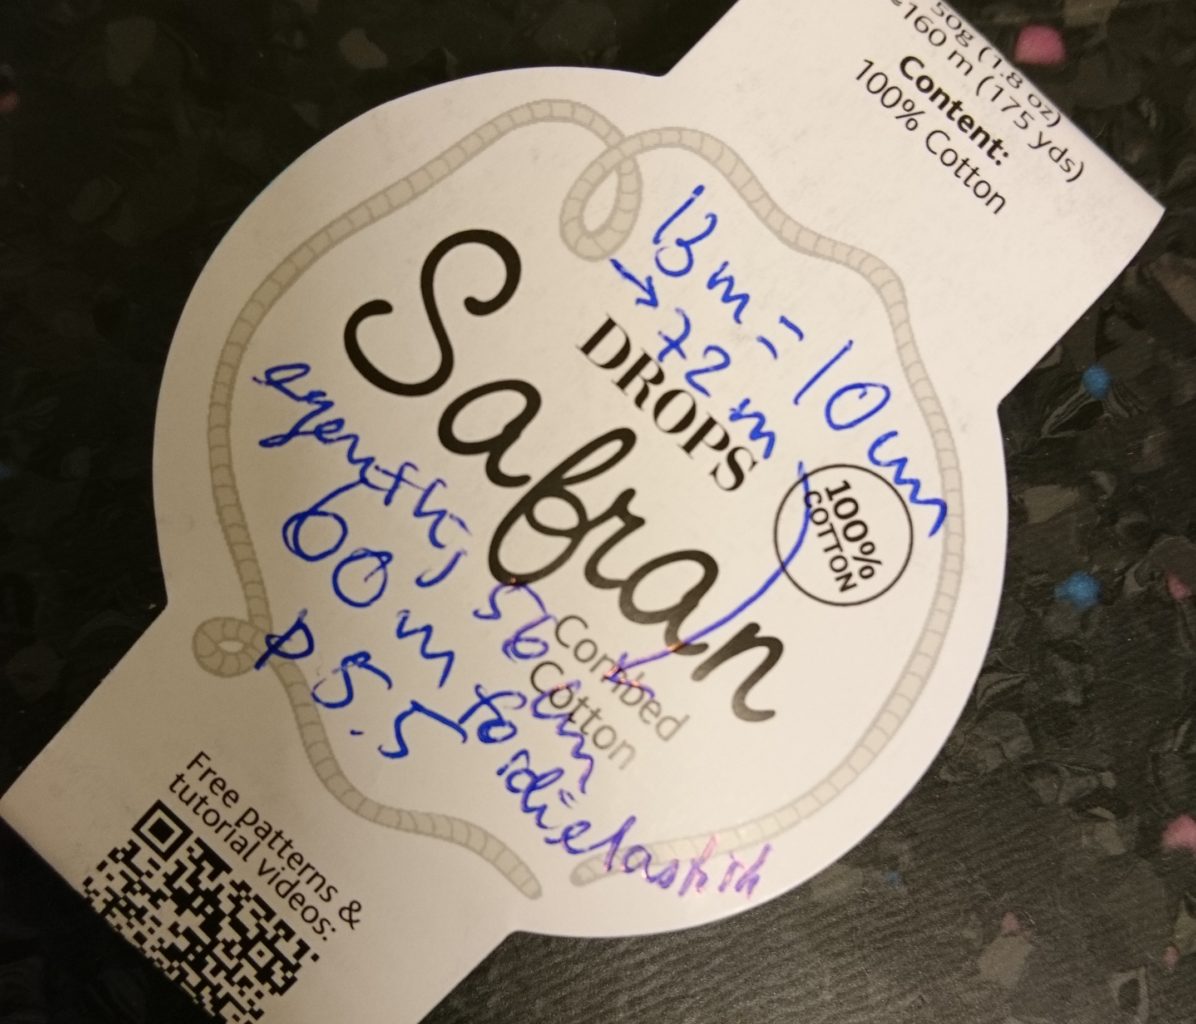 50g (1.8 oz)
≤160 m (175 yds)
Content:
100% Cotton
13 m = 10 cm
→ 72 m
DROPS
Safran
100%
COTTON
Combed
Cotton
56 cm
60 m für die elastisch
5.5
Free patterns &
tutorial videos: